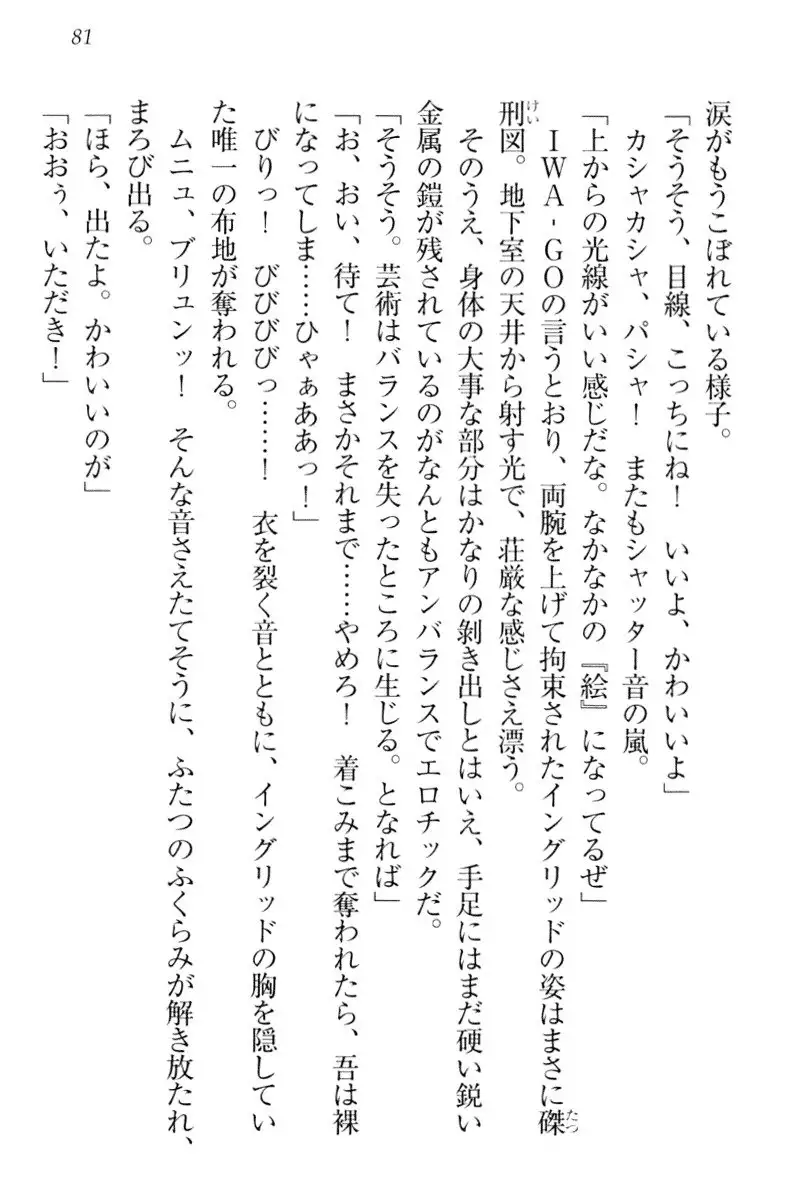 81
涙がもうこぼれている様子。
「そうそう、目線、こっちにね！　いいよ、かわいいよ」
カシャカシャ、パシャ！　またもシャッター音の嵐。
「上からの光線がいい感じだな。なかなかの『絵』になってるぜ」
たつ
ＩＷＡ‐ＧＯの言うとおり、両腕を上げて拘束されたイングリッドの姿はまさに磔
けい
刑図。地下室の天井から射す光で、荘厳な感じさえ漂う。
そのうえ、身体の大事な部分はかなりの剝き出しとはいえ、手足にはまだ硬い鋭い
金属の鎧が残されているのがなんともアンバランスでエロチックだ。
「そうそう。芸術はバランスを失ったところに生じる。となれば」
「お、おい、待て！　まさかそれまで……やめろ！　着こみまで奪われたら、吾は裸
になってしま……ひゃぁああっ！」
びりっ！　びびびびっ……！　衣を裂く音とともに、イングリッドの胸を隠してい
た唯一の布地が奪われる。
ムニュ、ブリュンッ！　そんな音さえたてそうに、ふたつのふくらみが解き放たれ、
まろび出る。
「ほら、出たよ。かわいいのが」
「おおぅ、いただき！」